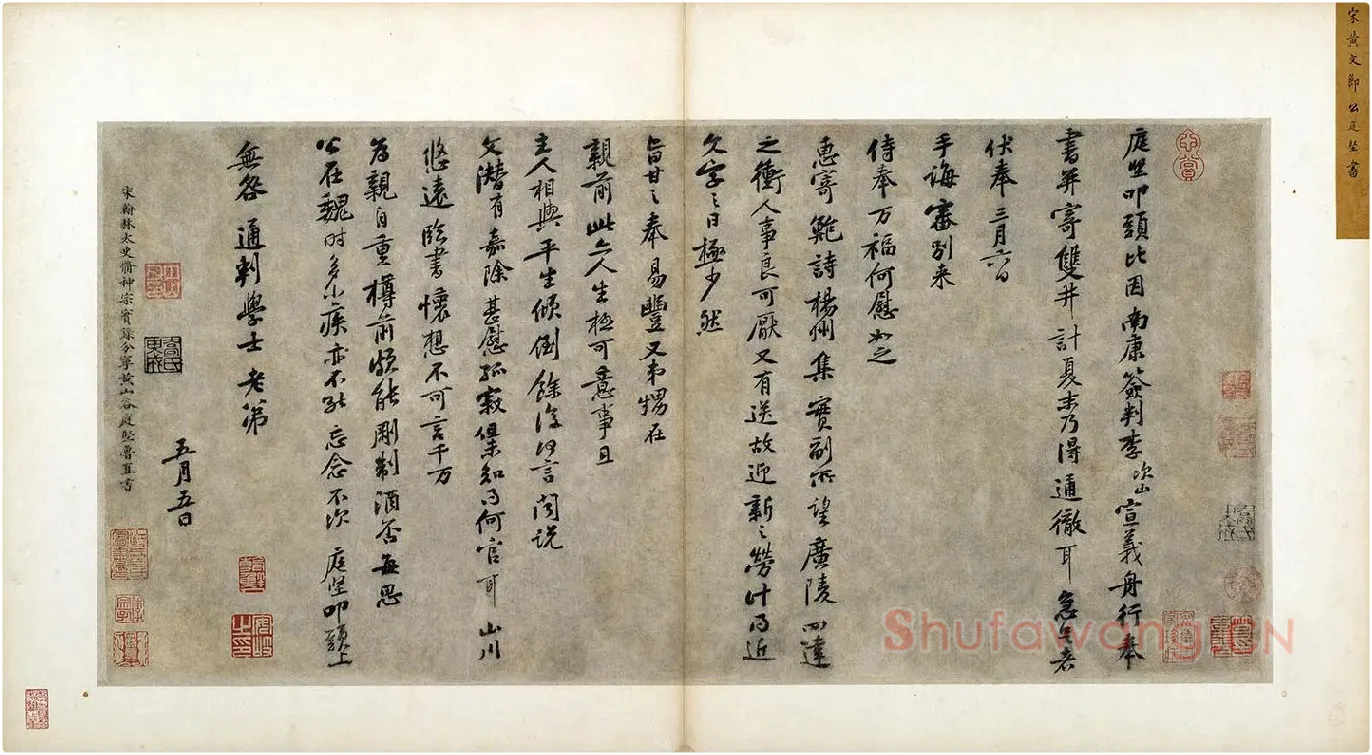 宋黃文節公庭堅書
庭堅叩頭比因南康簽判李次山宣義舟行奉
書并寄雙井計夏末乃得通徹耳急足者
伏奉三月六日
手誨審別來
侍奉万福何慰如之
惠寄鮑詩楊州集實副所望廣陵四達
之衝人事良可厭又有送故迎新之勞計為近
文字之日極少然
旨甘之奉易豐又弟甥在
親前此亦人生極可意事且
主人相與平生傾倒餘復何言聞說
文潛有嘉除甚慰孤寂俱未知為何官耳山川
悠遠臨書懷想不可言千万
為親自重樽前頗能剛制酒否每思
公在魏時多小疾亦不能忘念不次 庭堅叩頭上
無咎通判學士老弟
五月五日
宋翰林太史脩神宗實錄分寧黃山谷庭堅魯直書
Shufawang.CN